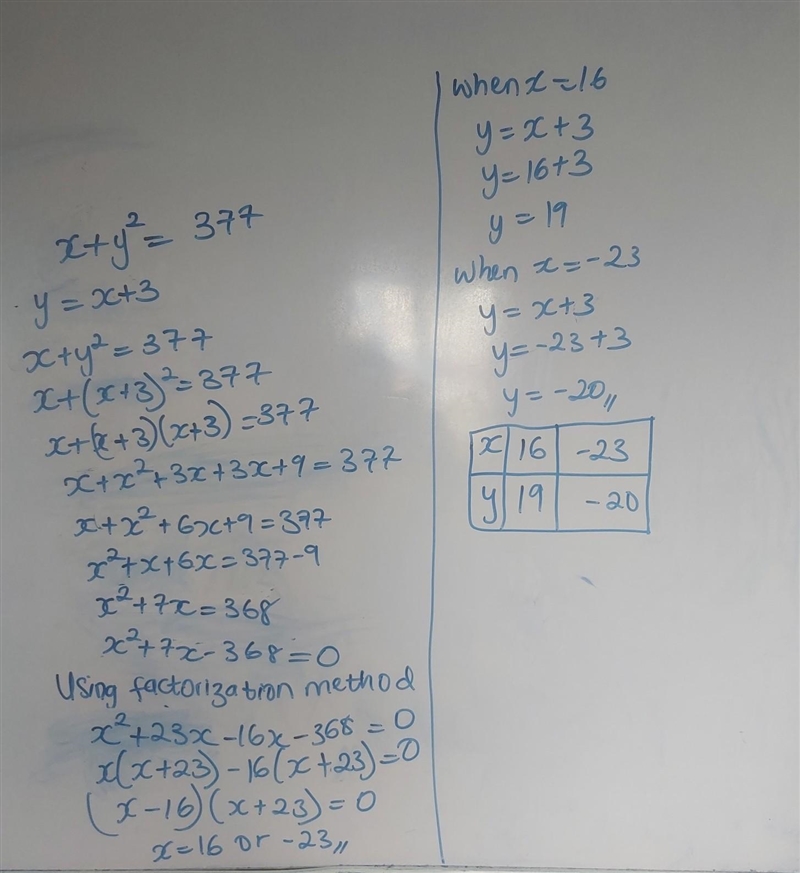 x+y²= 377
y = x+3
x+y²=377
x+(x+3)²=377
x+(x+3)(x+3)=377
x+x²+3x+3x+9=377
x+x²+6x+9=377
x²+x+6x=377-9
x²+7x=368
x²+7x-368=0
Using factorization method
x²+23x-16x-368=0
x(x+23)-16(x+23)=0
(x-16)(x+23)=0
x=16 or -23,,
when x=16
y=x+3
y=16+3
y=19
when x=-23
y=x+3
y=-23+3
y=-20,,
x 16 -23
y 19 -20